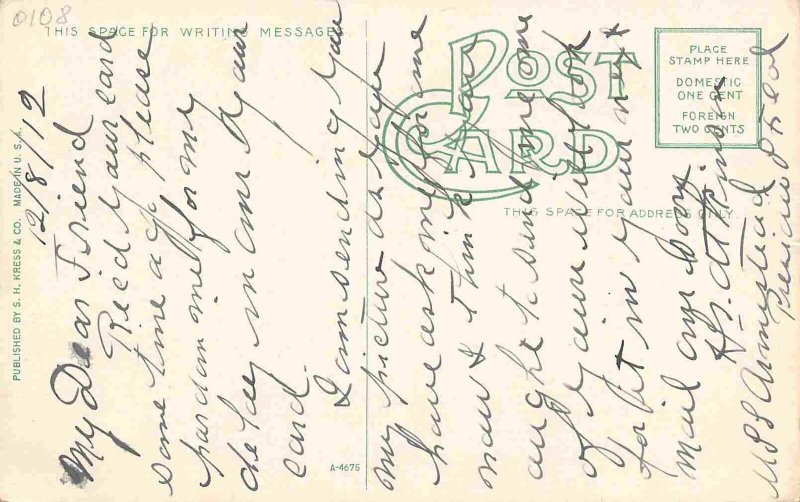 0108
THIS SPACE FOR WRITING MESSAGES
POST CARD
THIS SPACE FOR ADDRESS ONLY
PLACE
STAMP HERE
DOMESTIC
ONE CENT
FOREIGN
TWO CENTS
PUBLISHED BY S. H. KRESS & CO. MADE IN U. S. A.
A-4675
12/8/12
My Dear Friend
Recd your card
some time ago please
pardon me for my
delay in ans your
card.
I am sending you
my picture as you
have ask me for one
now I think you
aught to send me one
of yours will look
for it in your next
mail ans soon
U S S Armistead